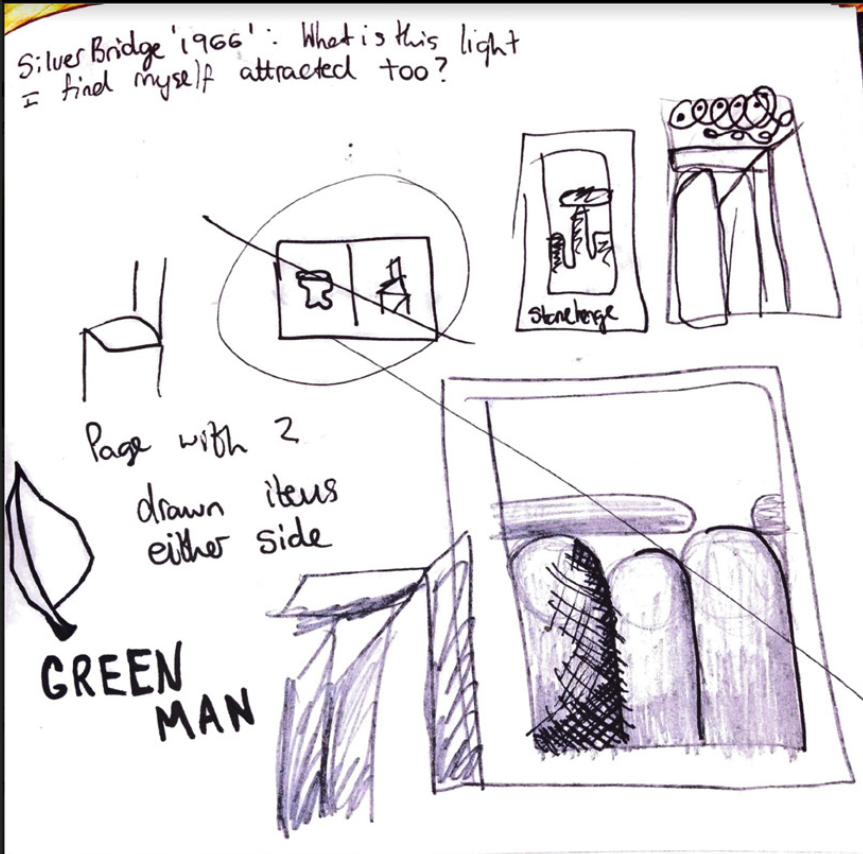 Silver Bridge '1966': What is this light
I find myself attracted too?
Stonehenge
Page with 2
drawn items
either side
GREEN
MAN